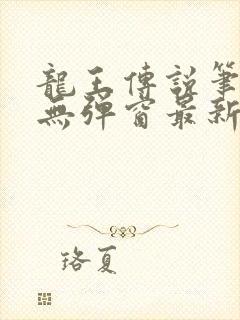 龍王傳說筆
無彈窗最新
珞夏